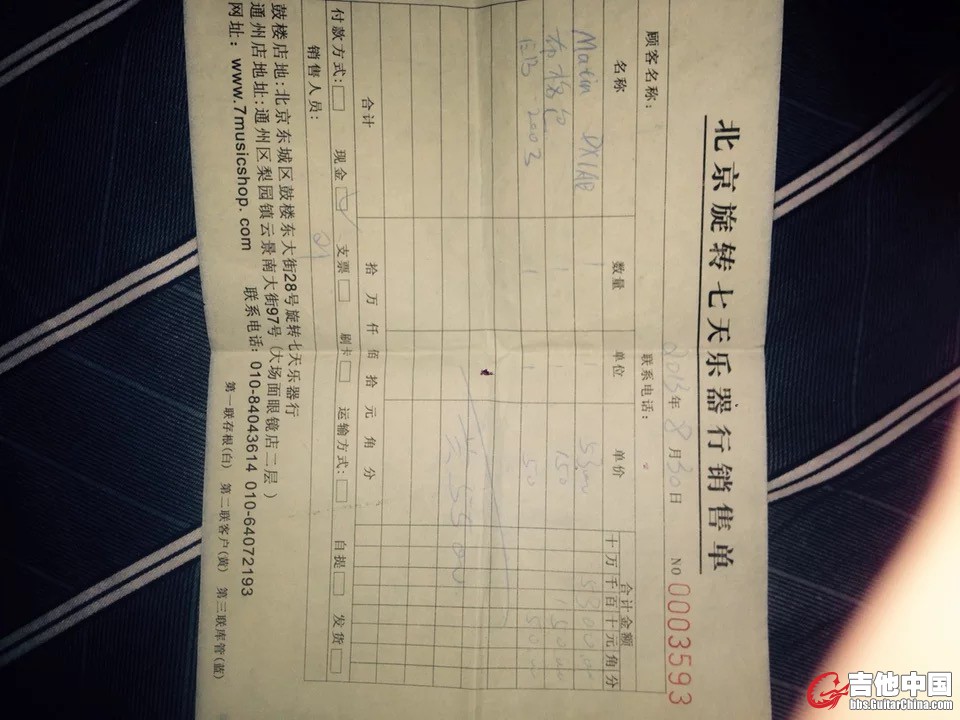 北京旋转七天乐器行销售单
NO 0003593
2013年8月30日
顾客名称: 联系电话:
名称 数量 单位 单价 合计金额
十万千百十元角分
Matin DX1AE 1 1 5300 5300.00
1 1 150 150.00
EB 2003 1 1 50 50.00
5500
合计 拾万仟佰拾元角分
付款方式: 现金 支票 刷卡 运输方式: 自提 发货
销售人员:
鼓楼店地:北京东城区鼓楼东大街28号旋转七天乐器行
通州店地址:通州区梨园镇云景南大街97号(大场面眼镜店二层)
网址: www.7musicshop.com 联系电话: 010-84043614 010-64072193
第一联存根(白) 第二联客户(黄) 第三联库管(蓝)
吉他中国
bbs.GuitarChina.com